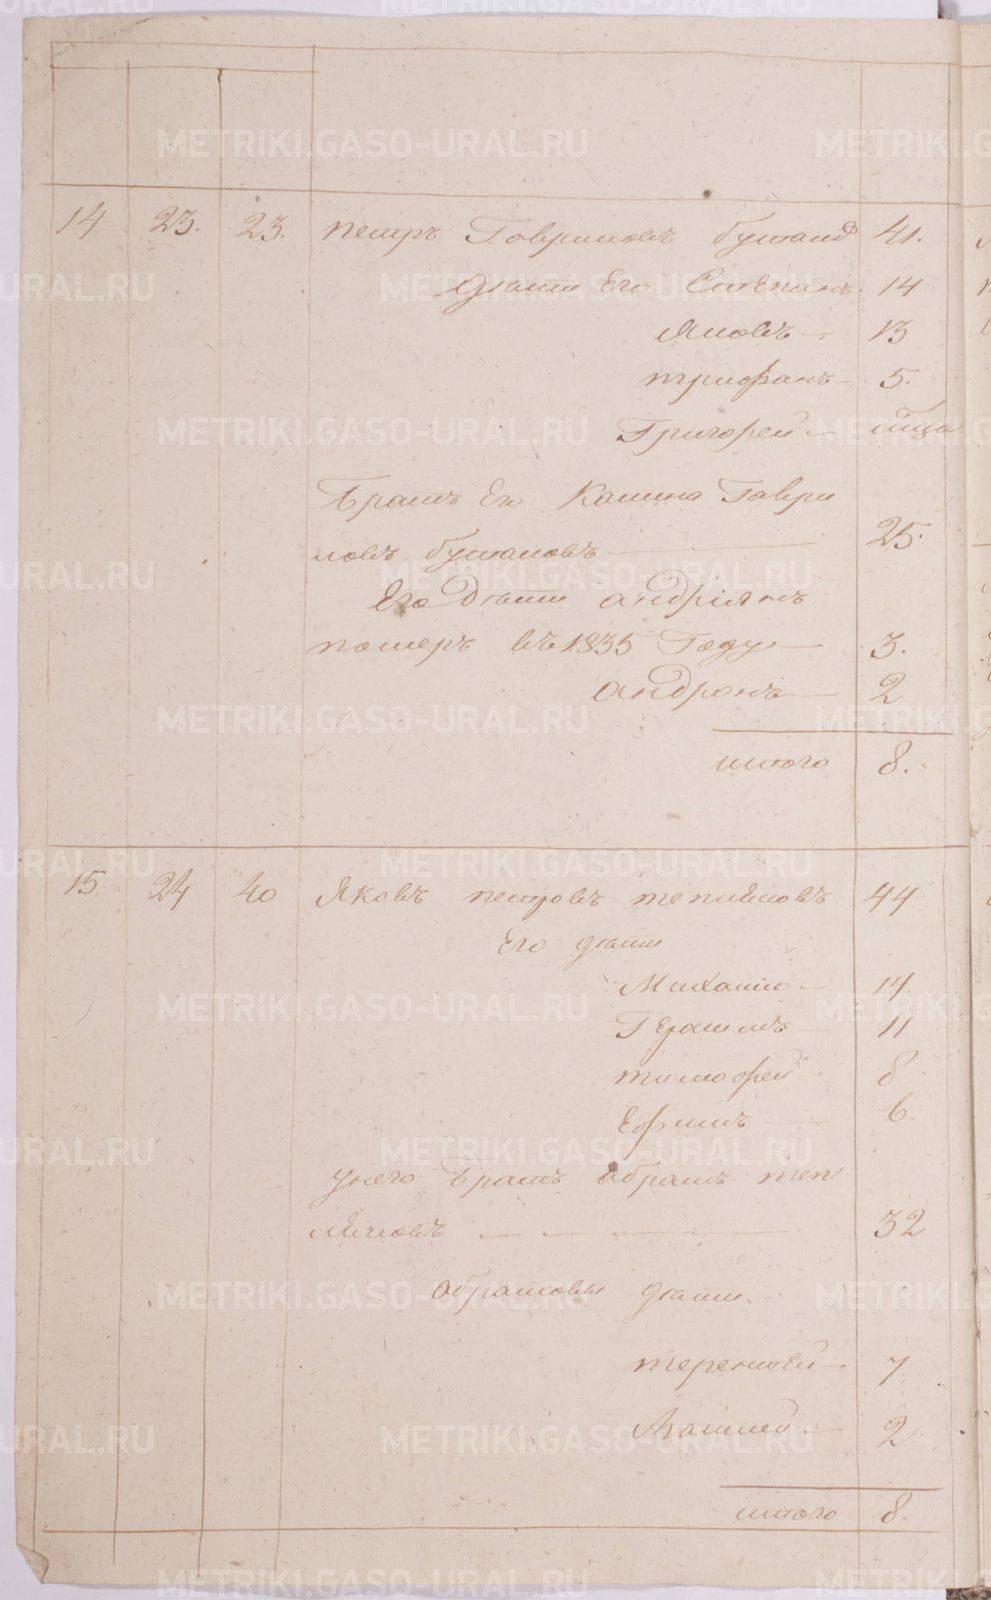 14 23. 23. петръ Гавриловъ бутаков 41.
дѣти Его Степанъ. 14
Яковъ 13
трифанъ 5.
Григорей
Братъ Его Калина Гаври
ловъ бутаковъ 25.
Его Дѣти андріянъ
померъ въ 1835 Году 3.
андронъ 2
итого 8.
15 24 40 Яковъ петровъ тепляковъ 44
Его дѣти
Михаило 14
Герасимъ 11
тимофей 8
Ефимъ 6.
унего братъ абрамъ теп
ляковъ 32
абрамовы дѣти.
терентей 7
2
итого 8.
METRIKI.GASO-URAL.RU